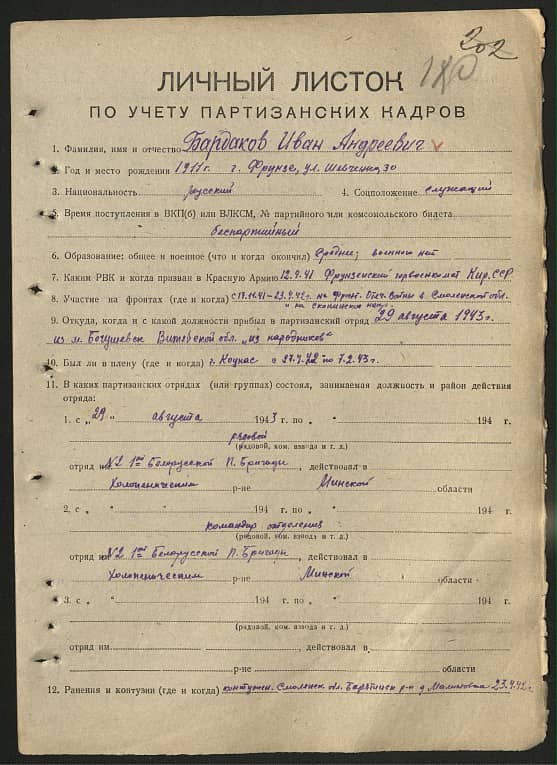 202
180
ЛИЧНЫЙ ЛИСТОК
ПО УЧЕТУ ПАРТИЗАНСКИХ КАДРОВ
1. Фамилия, имя и отчество Бардаков Иван Андреевич
2. Год и место рождения 1911 г. г. Фрунзе, ул. Шевченко, 30
3. Национальность русский 4. Соцположение служащий
5. Время поступления в ВКП(б) или ВЛКСМ, № партийного или комсомольского билета
беспартийный
6. Образование: общее и военное (что и когда окончил) среднее; военного нет
7. Каким РВК и когда призван в Красную Армию 12.9.41 Фрунзенский горвоенкомат Кир. ССР
8. Участие на фронтах (где и когда) с 17.11.41-23.4.42 г. на фронт. Отеч. войны в Смоленской обл.
и на
9. Откуда, когда и с какой должности прибыл в партизанский отряд 29 августа 1943 г.
из м. Богушевск Витебской обл. „из народников"
10. Был ли в плену (где и когда) г. Коунас с 27.4.42 по 7.2.43 г.
11. В каких партизанских отрядах (или группах) состоял, занимаемая должность и район действия
отряда:
1. с „29 " августа 1943 г. по „ " 194 г.
рядовой
(рядовой, ком. взвода и т. д.)
отряд им. №2 1ой Белорусской П. Бригады, действовал в
Холопеническим р-не Минской области
2. с „ " 194 г. по „ " 194 г.
командир отделения
(рядовой, ком. взвода и т. д.)
отряд им. №2 1ой Белорусской П. Бригады, действовал в
Холопеническим р-не Минской области
3. с „ " 194 г. по „ " 194 г.
(рядовой, ком. взвода и т. д.)
отряд им. , действовал в
р-не области
12. Ранения и контузии (где и когда) контужен. Смоленск обл. р-н д. Малиновка 23.4.42 г.